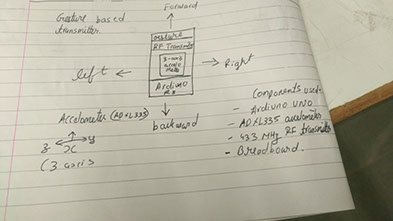 Gesture based
transmitter.
Forward
RF Transmitter
3-axis
left
Right
Arduino
backward
Accelometer (ADXL335)
3 y
x
(3 axis
Components used-
- Arduino UNO
- ADXL335 accelometer
- 433 MHz RF transmitter
- Breadboard.